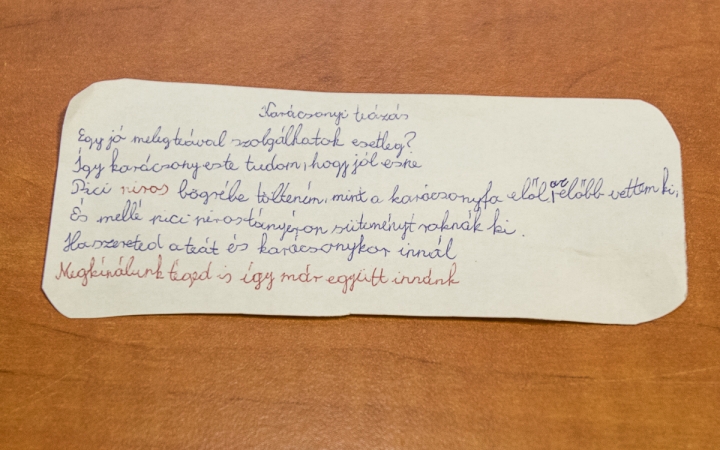 Karácsonyi teázás
Egy jó meleg teával szolgálhatok esetleg?
Így karácsony este tudom, hogy jól esne
Pici piros bögrébe tölteném, mint a karácsonyfa elől az előbb vettem ki,
És mellé pici piros tányéron süteményt raknék ki.
Ha szereted a teát és karácsonykor innál
Megkínálunk téged is így már együtt innánk